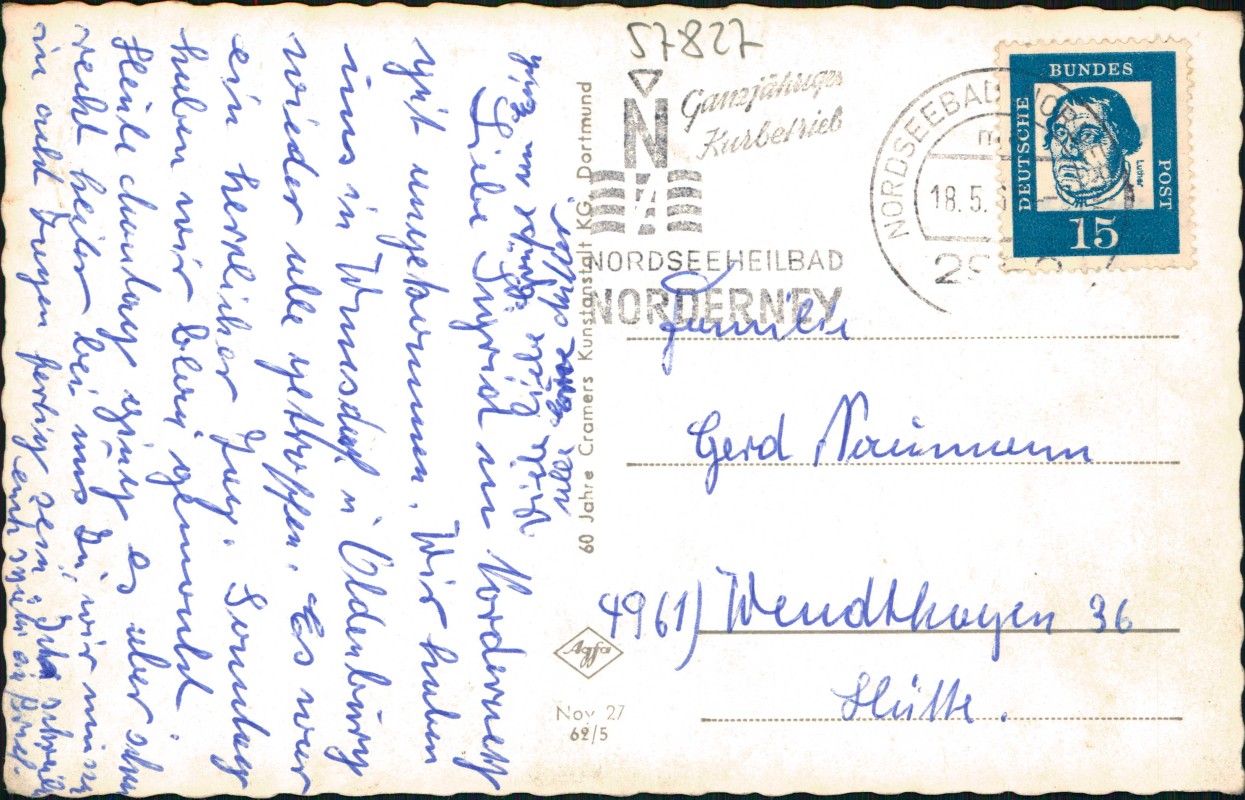 57827
Ganzjähriger
Kurbetrieb
N
NORDSEEHEILBAD
NORDERNEY
NORDSEEBAD NORDERNEY
18.5.6
DEUTSCHE
BUNDES
POST
Luther
15
Familie
Gerd Naumann
4961) Wendthagen 36
Hütte.
60 Jahre Cramers Kunstanstalt KG. Dortmund
Agfa
Nov 27
62/5
Liebe Ingrid in Norderney
gut angekommen. Wir haben
uns in Wunsdorf u. Oldenburg
wieder alle getroffen. Es war
ein herrlicher Tag. Sonntag
haben wir blau gemacht.
Heute Montag ging es aber schon
recht heiter bei uns zu, wir müssen
in acht Tagen fertig sein